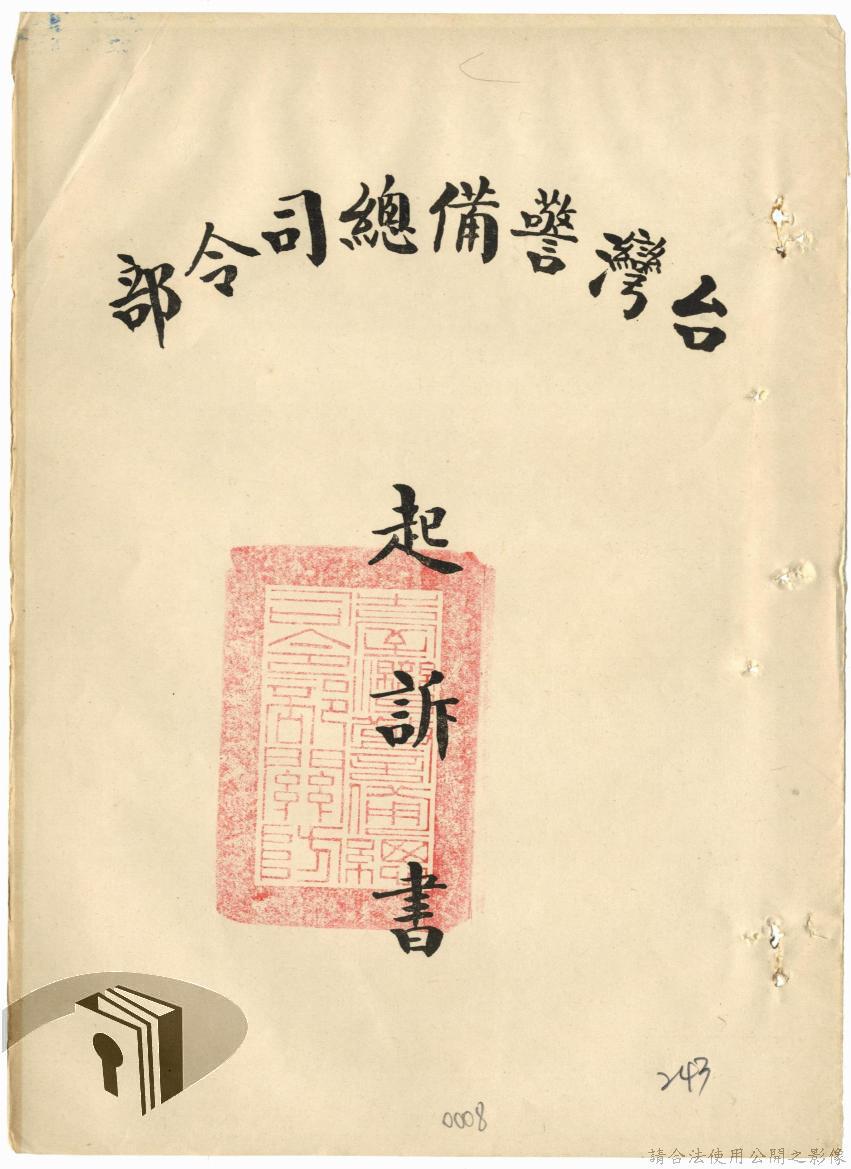 台灣警備總司令部
起訴書
臺灣警備總
司令部關防
243
0008
請合法使用公開之影像